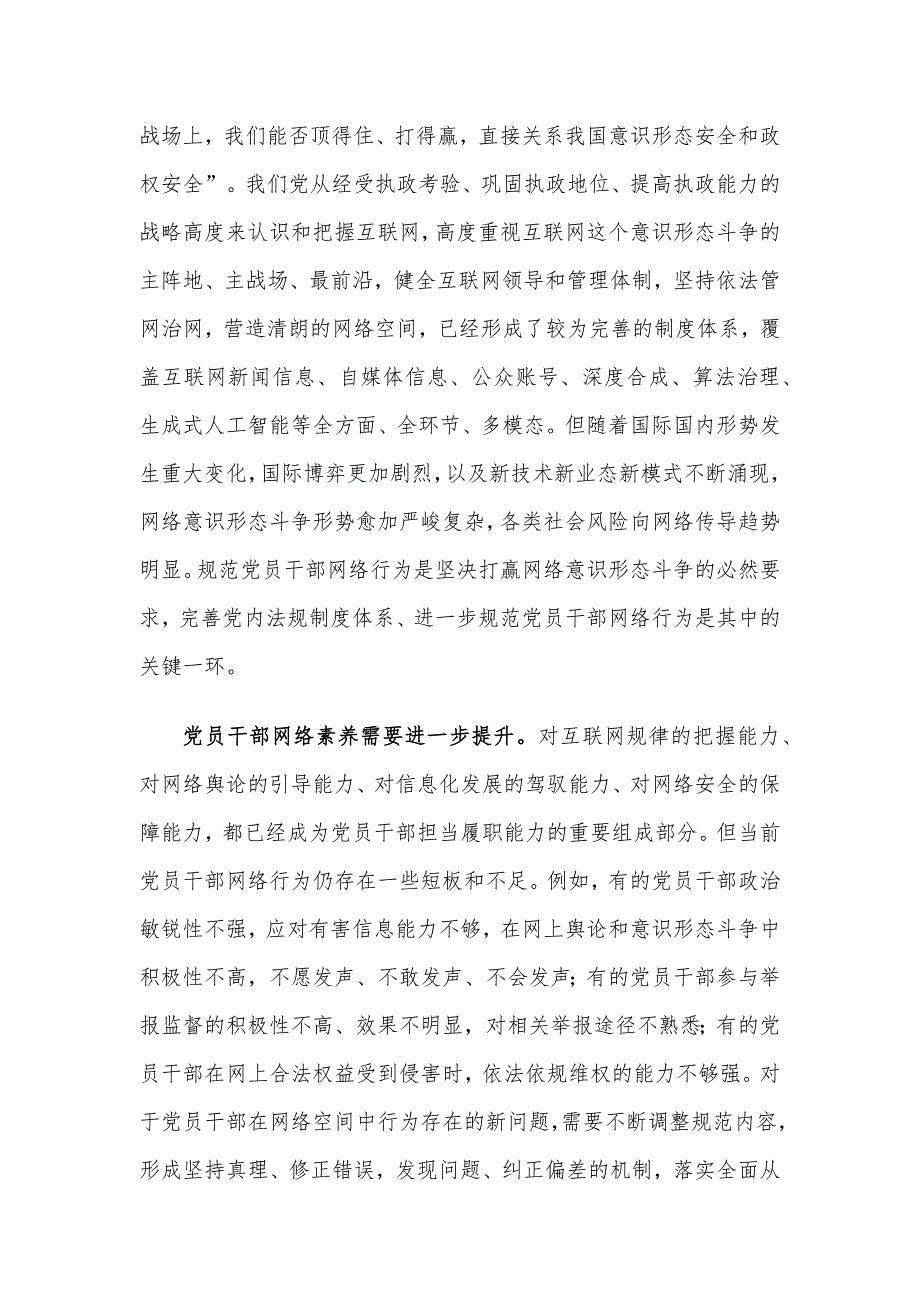 战场上，我们能否顶得住、打得赢，直接关系我国意识形态安全和政
权安全”。我们党从经受执政考验、巩固执政地位、提高执政能力的
战略高度来认识和把握互联网，高度重视互联网这个意识形态斗争的
主阵地、主战场、最前沿，健全互联网领导和管理体制，坚持依法管
网治网，营造清朗的网络空间，已经形成了较为完善的制度体系，覆
盖互联网新闻信息、自媒体信息、公众账号、深度合成、算法治理、
生成式人工智能等全方面、全环节、多模态。但随着国际国内形势发
生重大变化，国际博弈更加剧烈，以及新技术新业态新模式不断涌现，
网络意识形态斗争形势愈加严峻复杂，各类社会风险向网络传导趋势
明显。规范党员干部网络行为是坚决打赢网络意识形态斗争的必然要
求，完善党内法规制度体系、进一步规范党员干部网络行为是其中的
关键一环。
党员干部网络素养需要进一步提升。对互联网规律的把握能力、
对网络舆论的引导能力、对信息化发展的驾驭能力、对网络安全的保
障能力，都已经成为党员干部担当履职能力的重要组成部分。但当前
党员干部网络行为仍存在一些短板和不足。例如，有的党员干部政治
敏锐性不强，应对有害信息能力不够，在网上舆论和意识形态斗争中
积极性不高，不愿发声、不敢发声、不会发声；有的党员干部参与举
报监督的积极性不高、效果不明显，对相关举报途径不熟悉；有的党
员干部在网上合法权益受到侵害时，依法依规维权的能力不够强。对
于党员干部在网络空间中行为存在的新问题，需要不断调整规范内容，
形成坚持真理、修正错误，发现问题、纠正偏差的机制，落实全面从